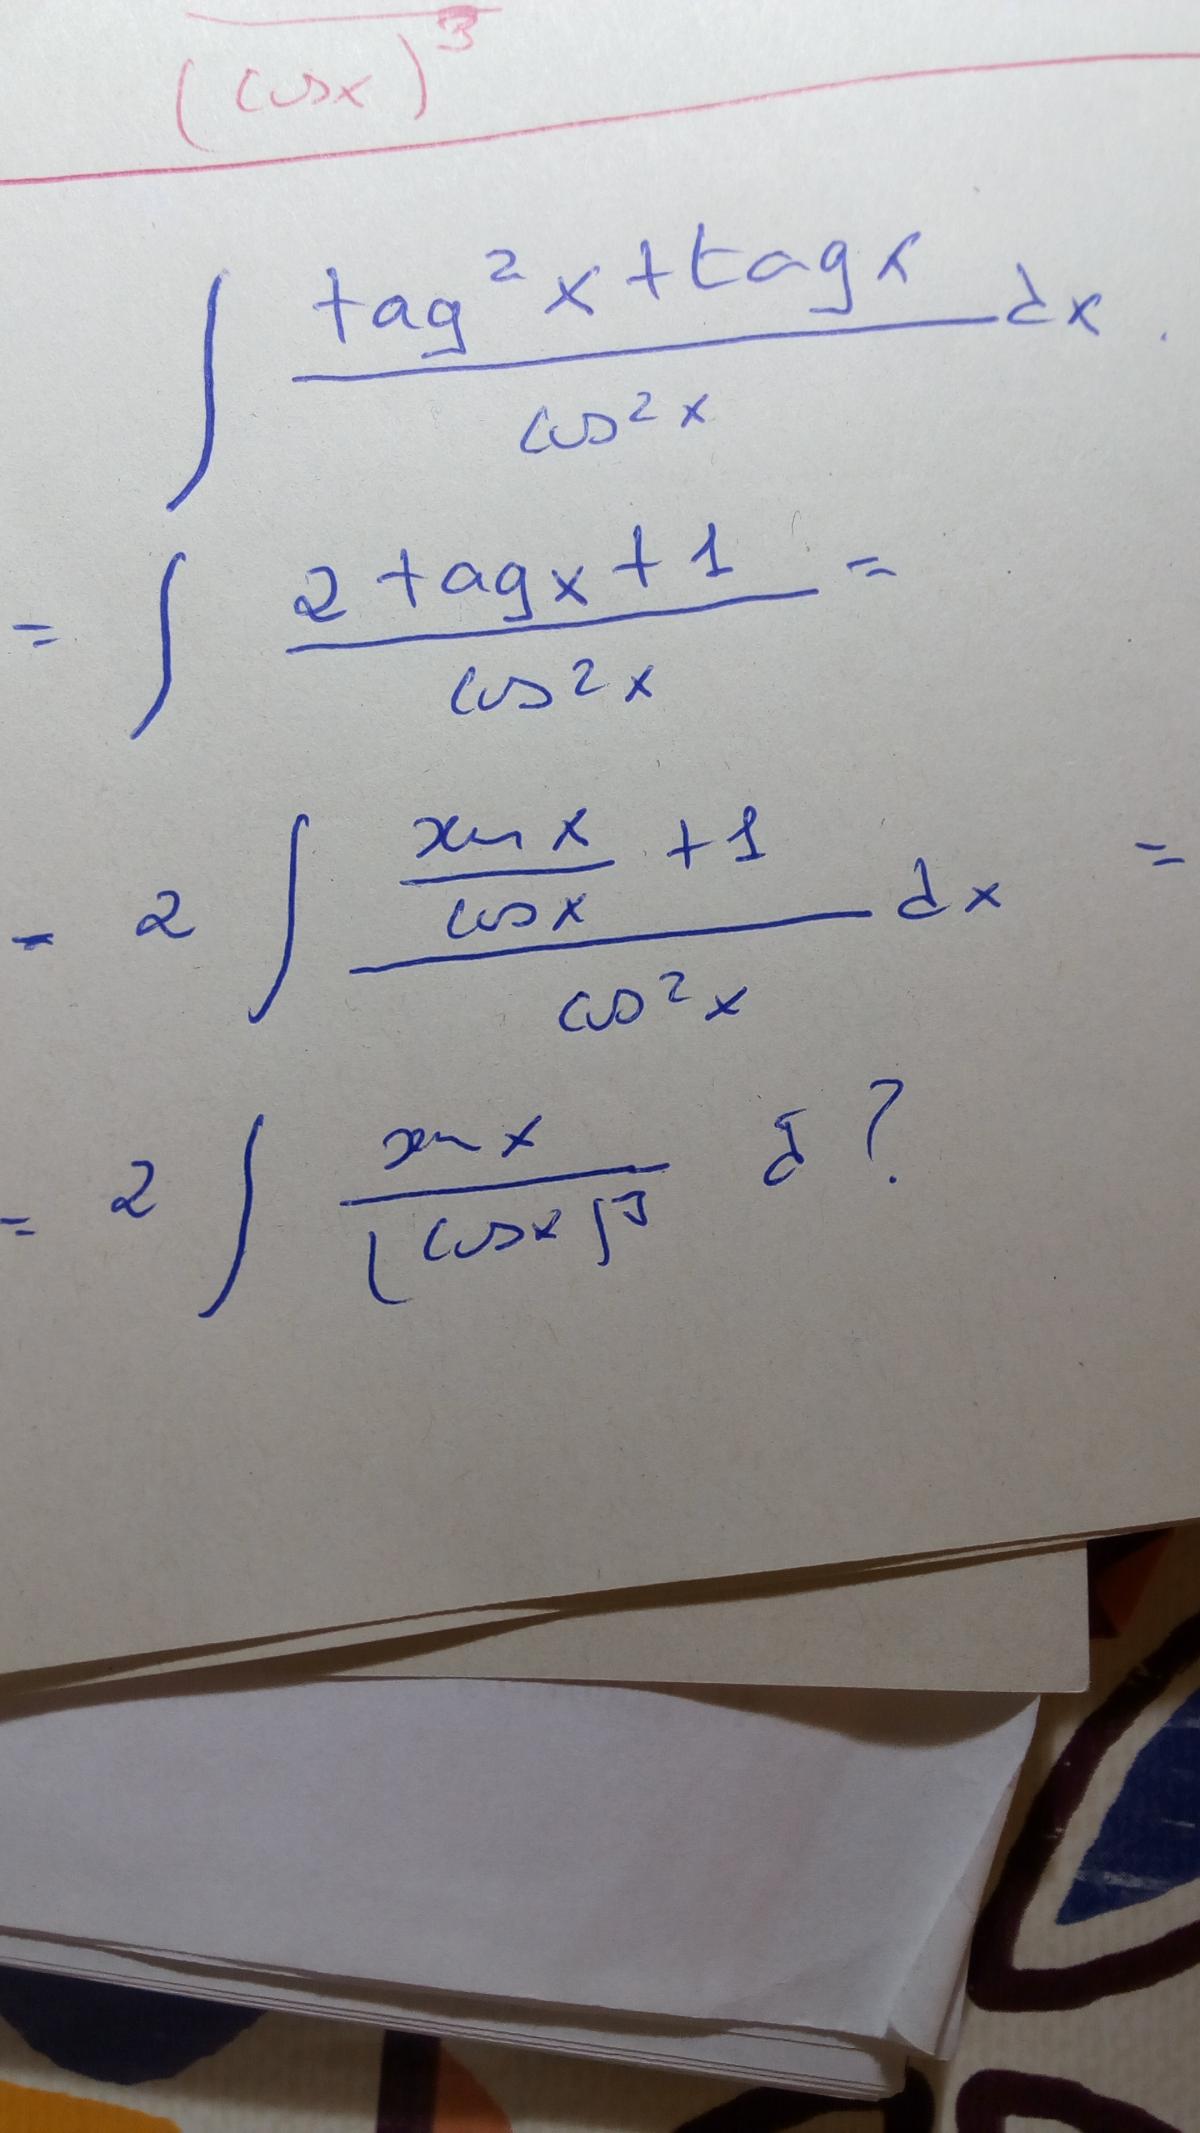 (cosx)³
∫ (tag²x + tagx)/(cos²x) dx.
= ∫ (2 tagx + 1)/(cos²x) =
= 2 ∫ ((sen x)/(cosx) + 1)/(cos²x) dx =
= 2 ∫ (sen x)/(cosx)³ d ?